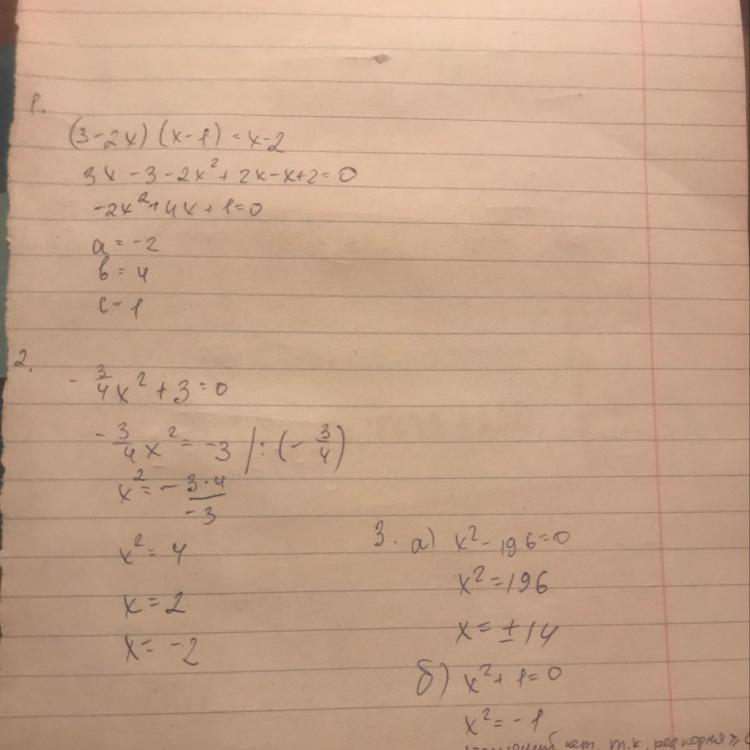 1.
(3-2x)(x-1)=x-2
3x-3-2x²+2x-x+2=0
-2x²+4x+1=0
a=-2
b=4
c=1
2.
-3/4x²+3=0
-3/4x²=-3 |:(-3/4)
x²=-3·4/-3
x²=4
x=2
x=-2
3. а) x²-196=0
x²=196
x=±14
б) x²+1=0
x²=-1
нет, т.к.